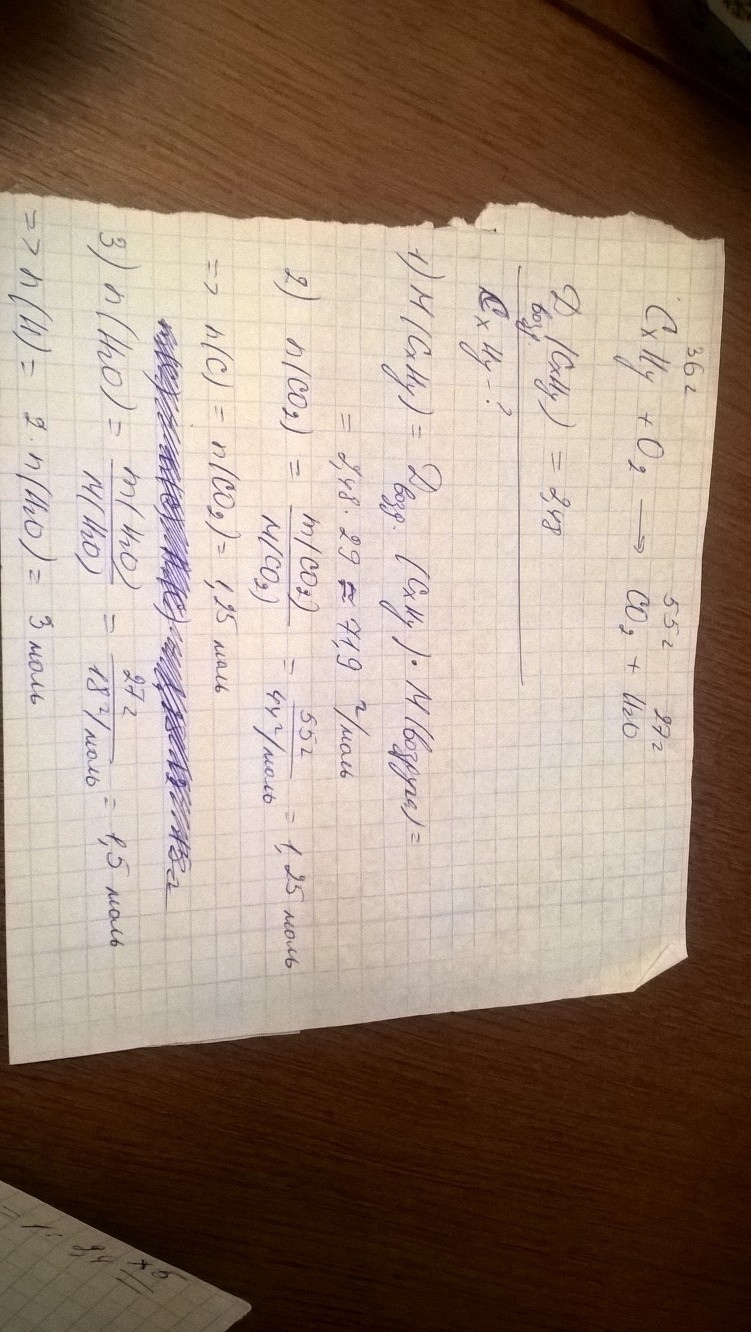 36г 55г 27г
CxHy + O2 → CO2 + H2O
Dвозд (CxHy) = 2,48
CxHy - ?
1) M(CxHy) = Dвозд. (CxHy) · M(воздуха) =
= 2,48 · 29 ≈ 71,9 г/моль
2) n(CO2) = m(CO2) / M(CO2) = 55г / 44г/моль = 1,25 моль
=> n(C) = n(CO2) = 1,25 моль
3) n(H2O) = m(H2O) / M(H2O) = 27г / 18г/моль = 1,5 моль
=> n(H) = 2 · n(H2O) = 3 моль